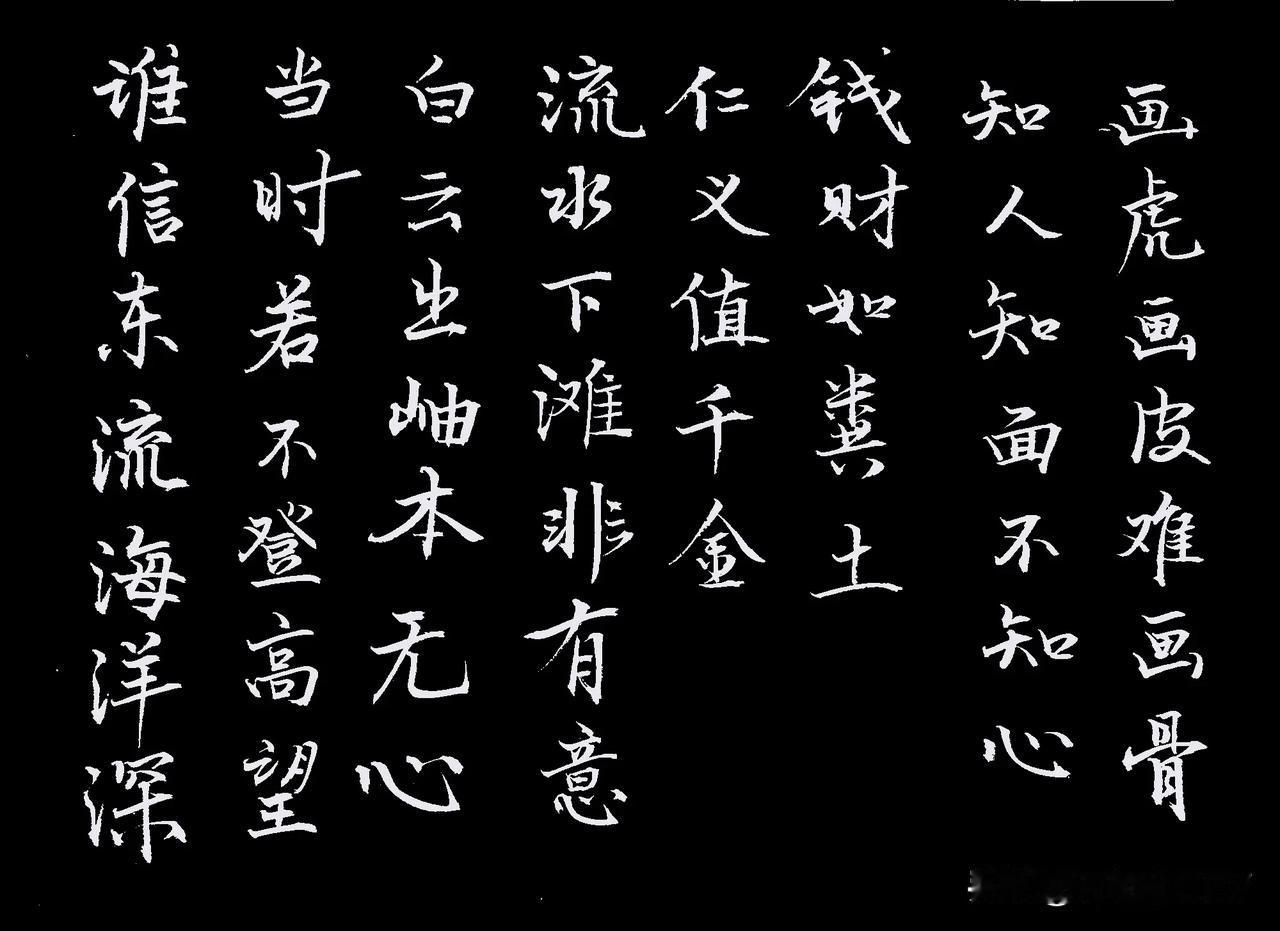 画虎画皮难画骨
知人知面不知心
钱财如粪土
仁义值千金
流水下滩非有意
白云出岫本无心
当时若不登高望
谁信东流海洋深